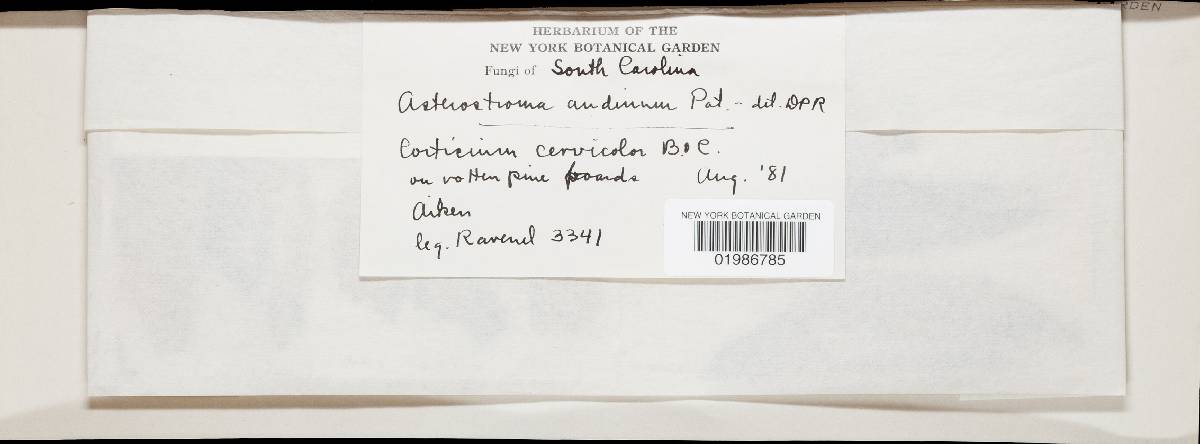 RDEN
HERBARIUM OF THE
NEW YORK BOTANICAL GARDEN
Fungi of South Carolina
Asterostroma andinum Pat. - det. DPR
Corticium cervicolor B. & C.
on rotten pine boards Aug. '81
Aiken
leg. Ravenel 3341
NEW YORK BOTANICAL GARDEN
01986785